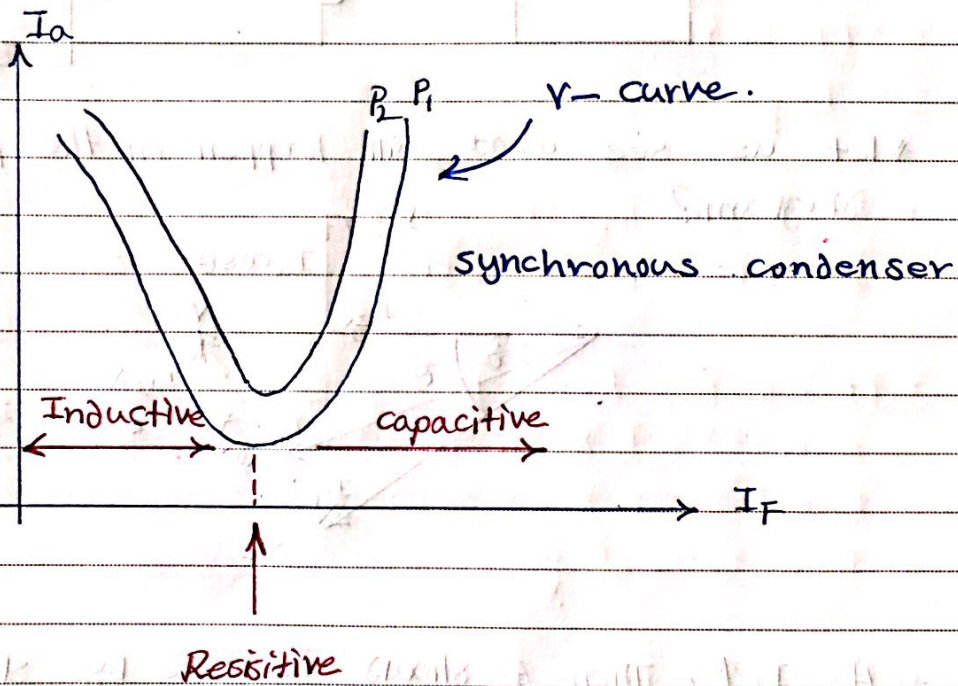 Ia
P2 P1
V- curve.
synchronous condenser
Inductive
capacitive
IF
Resisitive